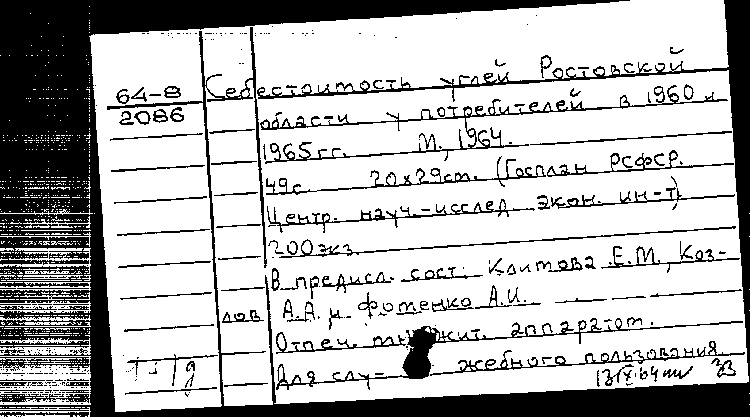 64-8 Себестоимость углей Ростовской
2086 области у потребителей в 1960 и
1965 гг. М., 1964.
49с. 20х29см. (Госплан РСФСР.
Центр. науч.-исслед. экон. ин-т)
200 экз.
В предисл. сост.: Климова Е.М., Коз-
лов А.А. и Фоменко А.И.
Отпеч. множит. аппаратом.
Для слу- жебного пользования